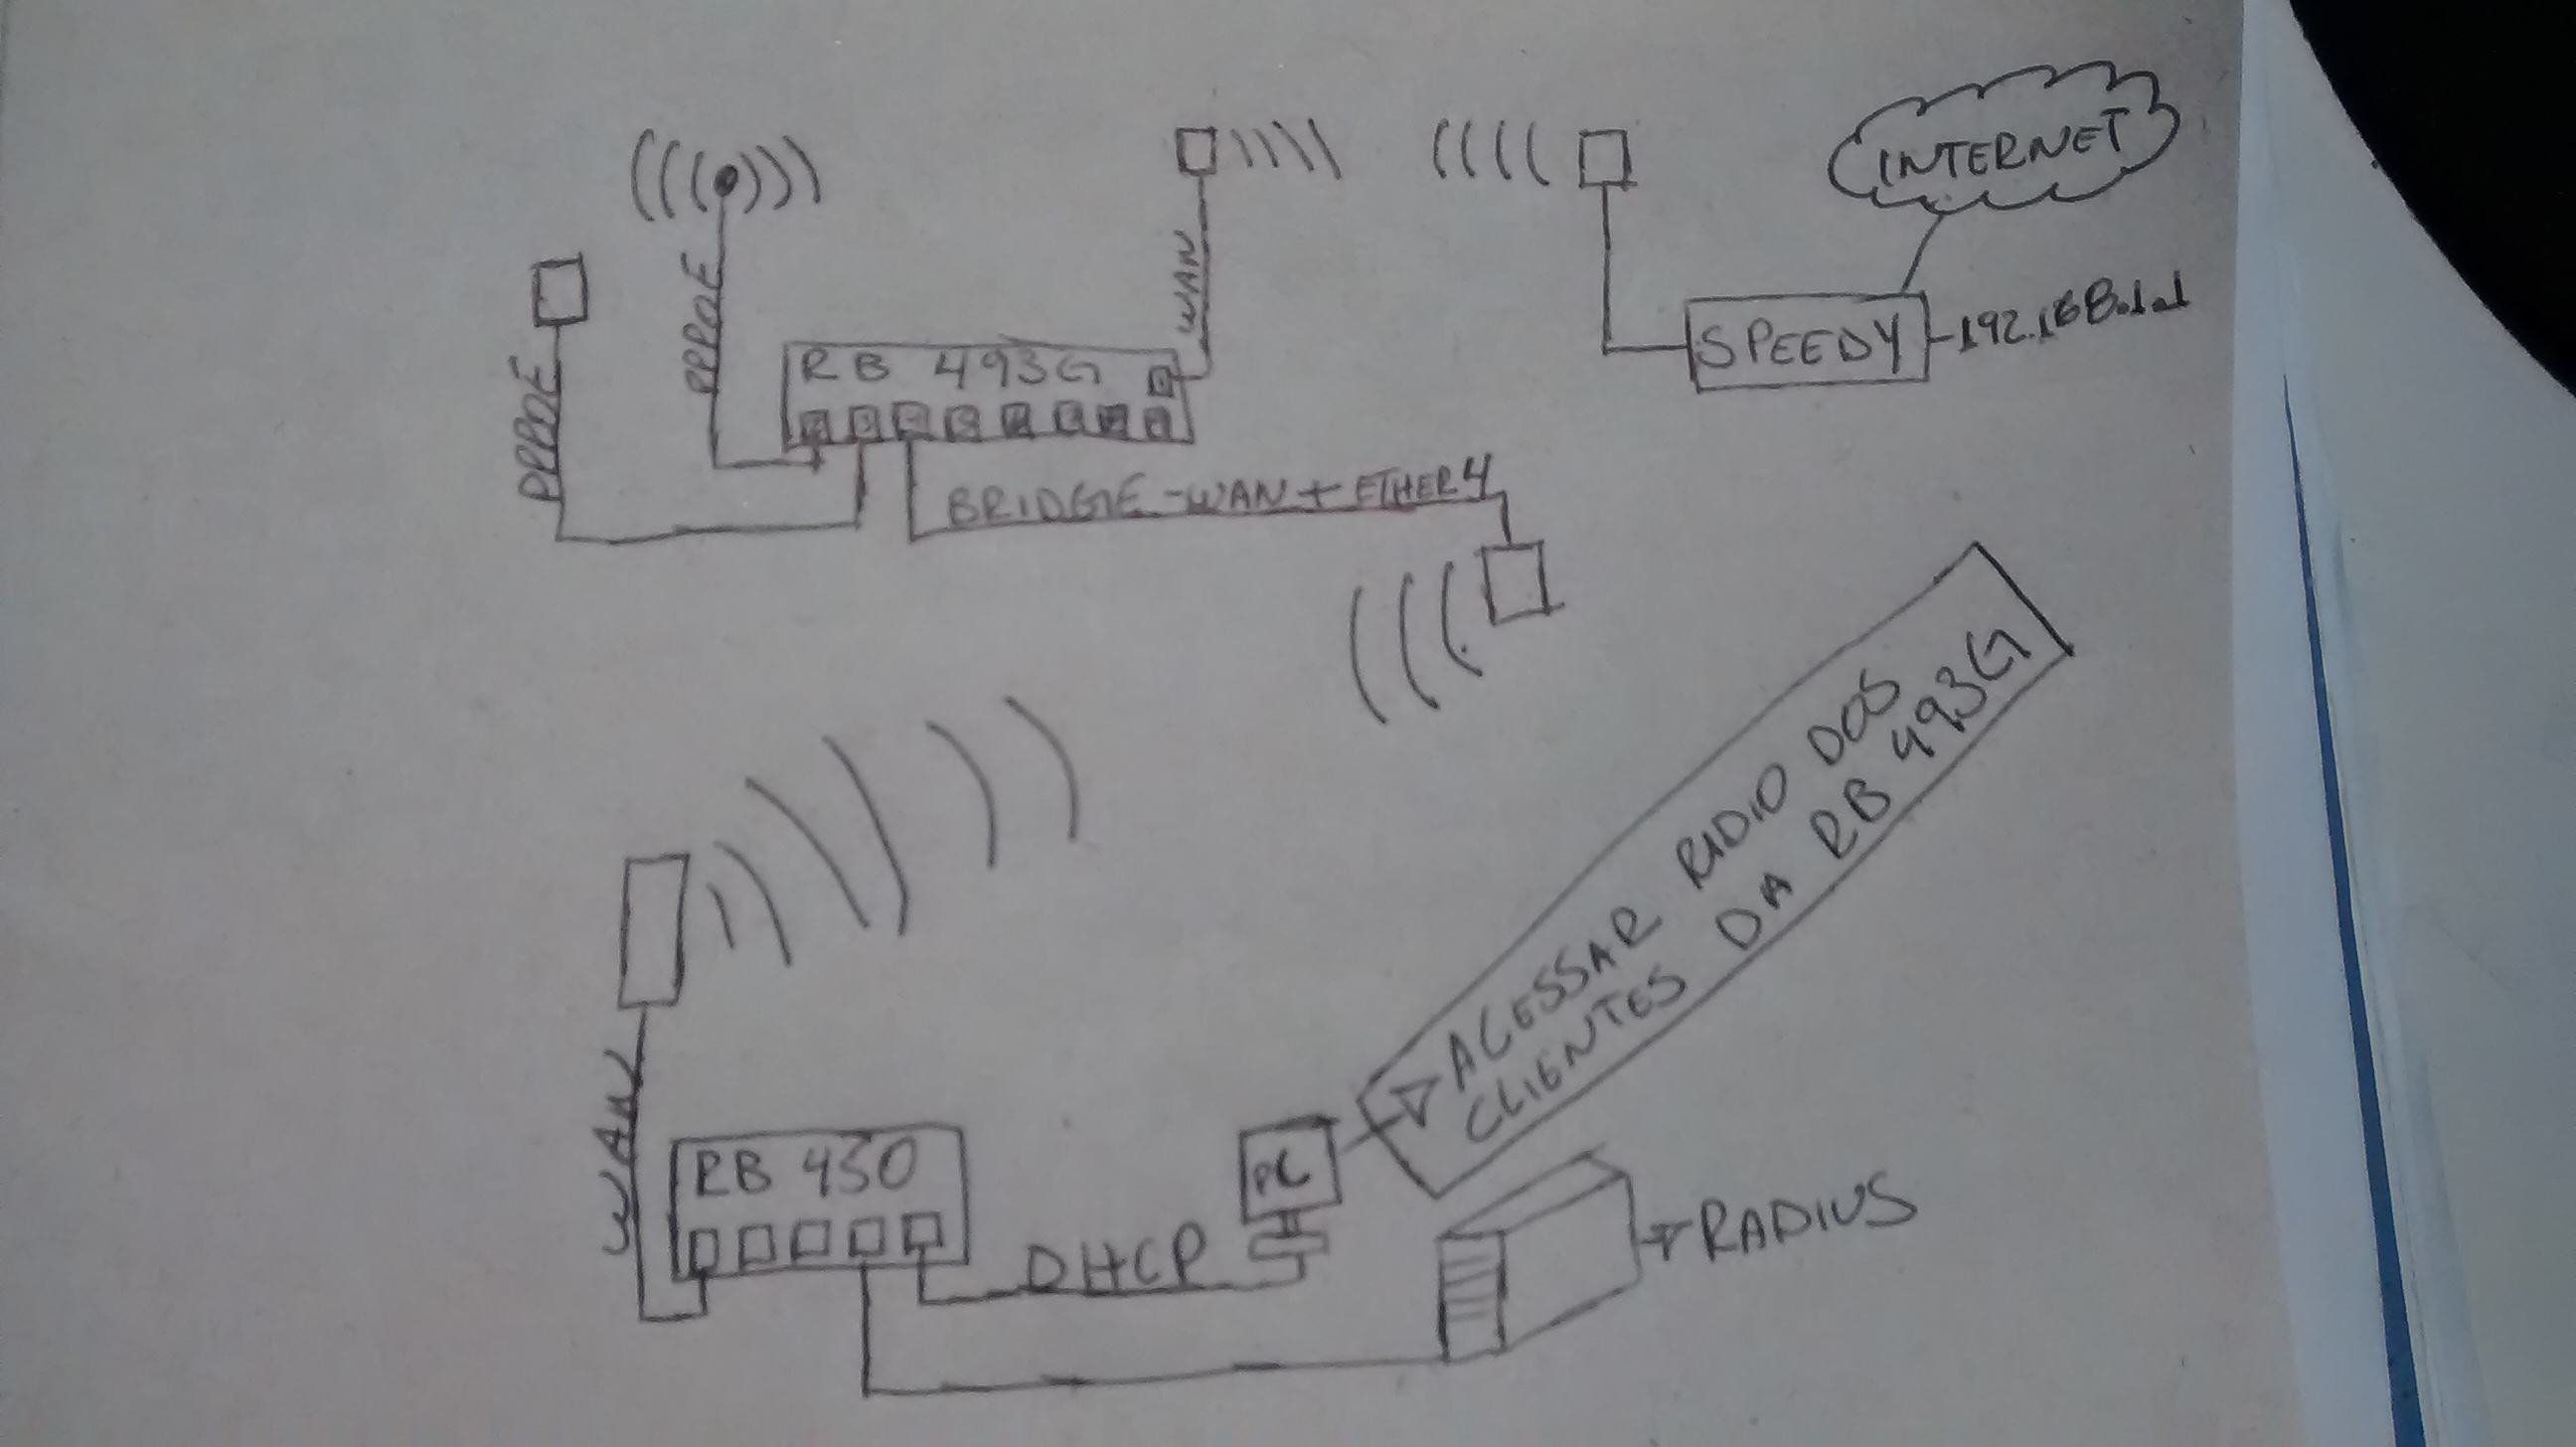 INTERNET
PPPOE
PPPOE
WAN
RB 493G
SPEEDY
192.168.1.1
BRIDGE-WAN+ETHER4
ACESSAR RADIO DOS
CLIENTES DA RB 493G
WAN
RB 450
PC
DHCP
RADIUS